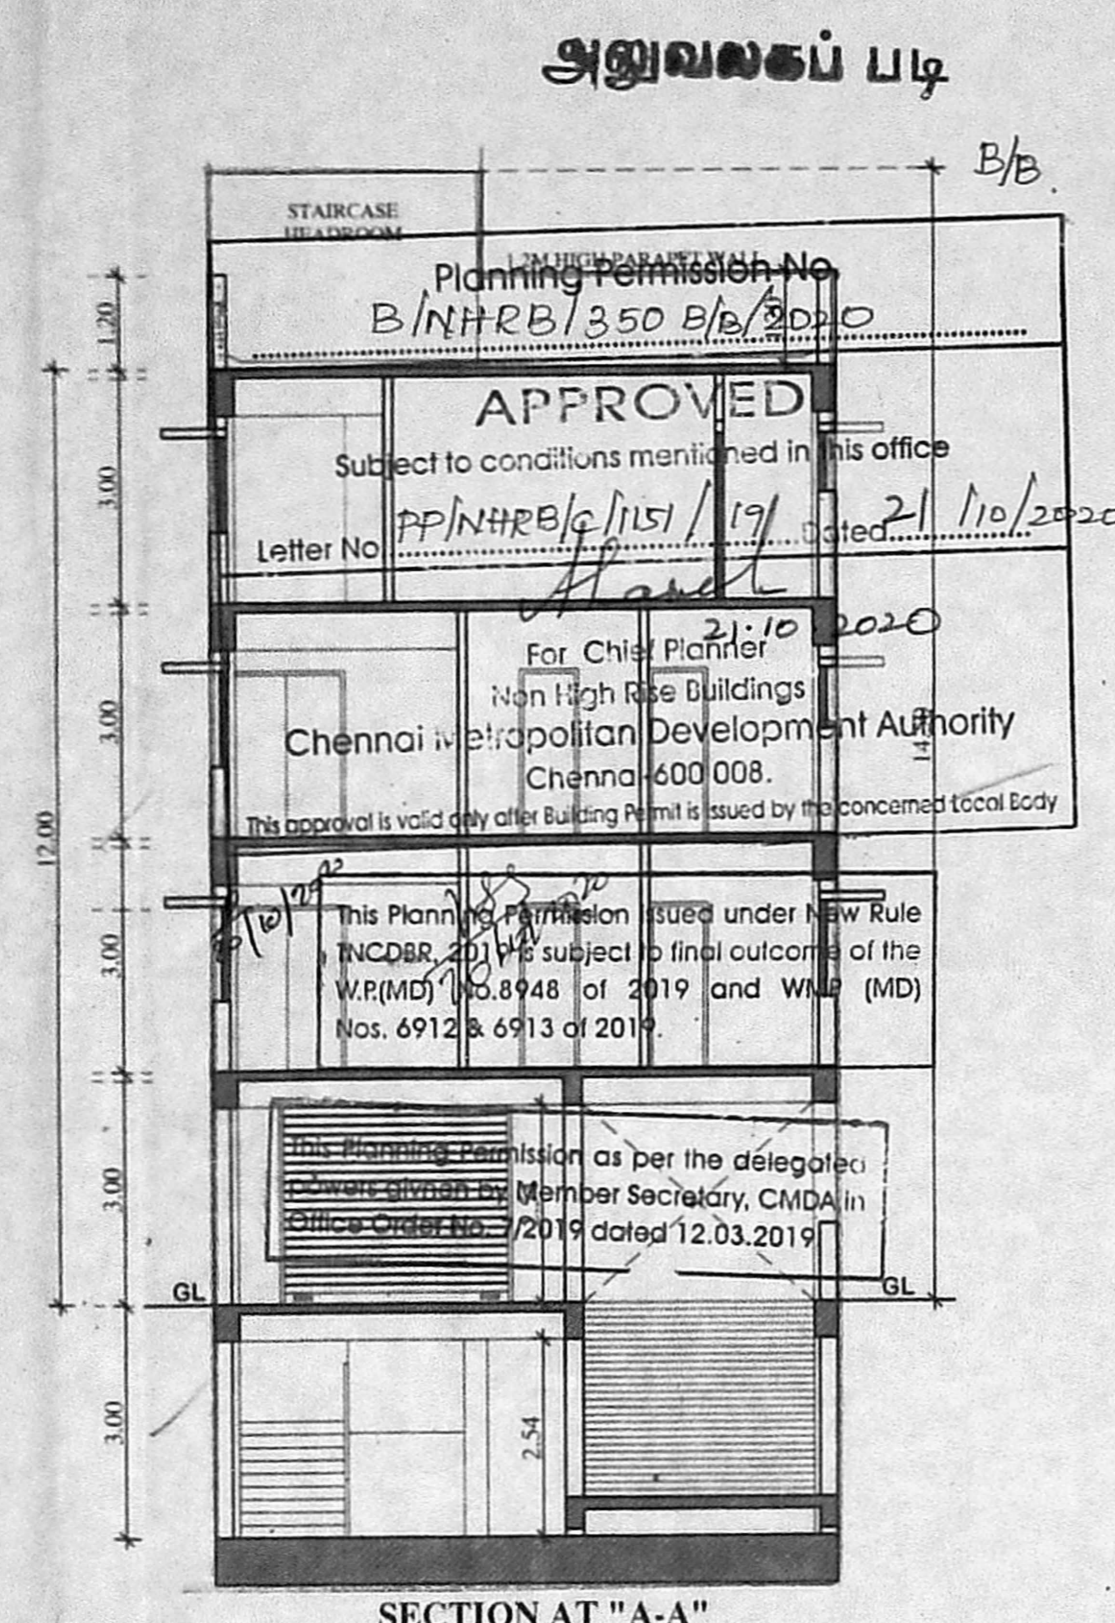 அலுவலகப் படி
B/B.
STAIRCASE
HEADROOM
1.2M HIGH PARAPET WALL
Planning Permission No.
B/NHRB/350 B/B/2020
1.20
APPROVED
Subject to conditions mentioned in this office
3.00
Letter No. PP/NHRB/C/1151/19/ Dated 21/10/2020
21.10 2020
For Chief Planner
Non High Rise Buildings
3.00
Chennai Metropolitan Development Authority
Chennai-600 008.
This approval is valid only after Building Permit is issued by the concerned Local Body
12.00
This Planning Permission issued under New Rule
TNCDBR, 2019 is subject to final outcome of the
3.00
W.P.(MD) No.8948 of 2019 and WMP (MD)
Nos. 6912 & 6913 of 2019.
This Planning Permission as per the delegated
3.00
powers givnen by Member Secretary, CMDA in
Office Order No. 7/2019 dated 12.03.2019
GL
GL
3.00
2.54
SECTION AT "A-A"